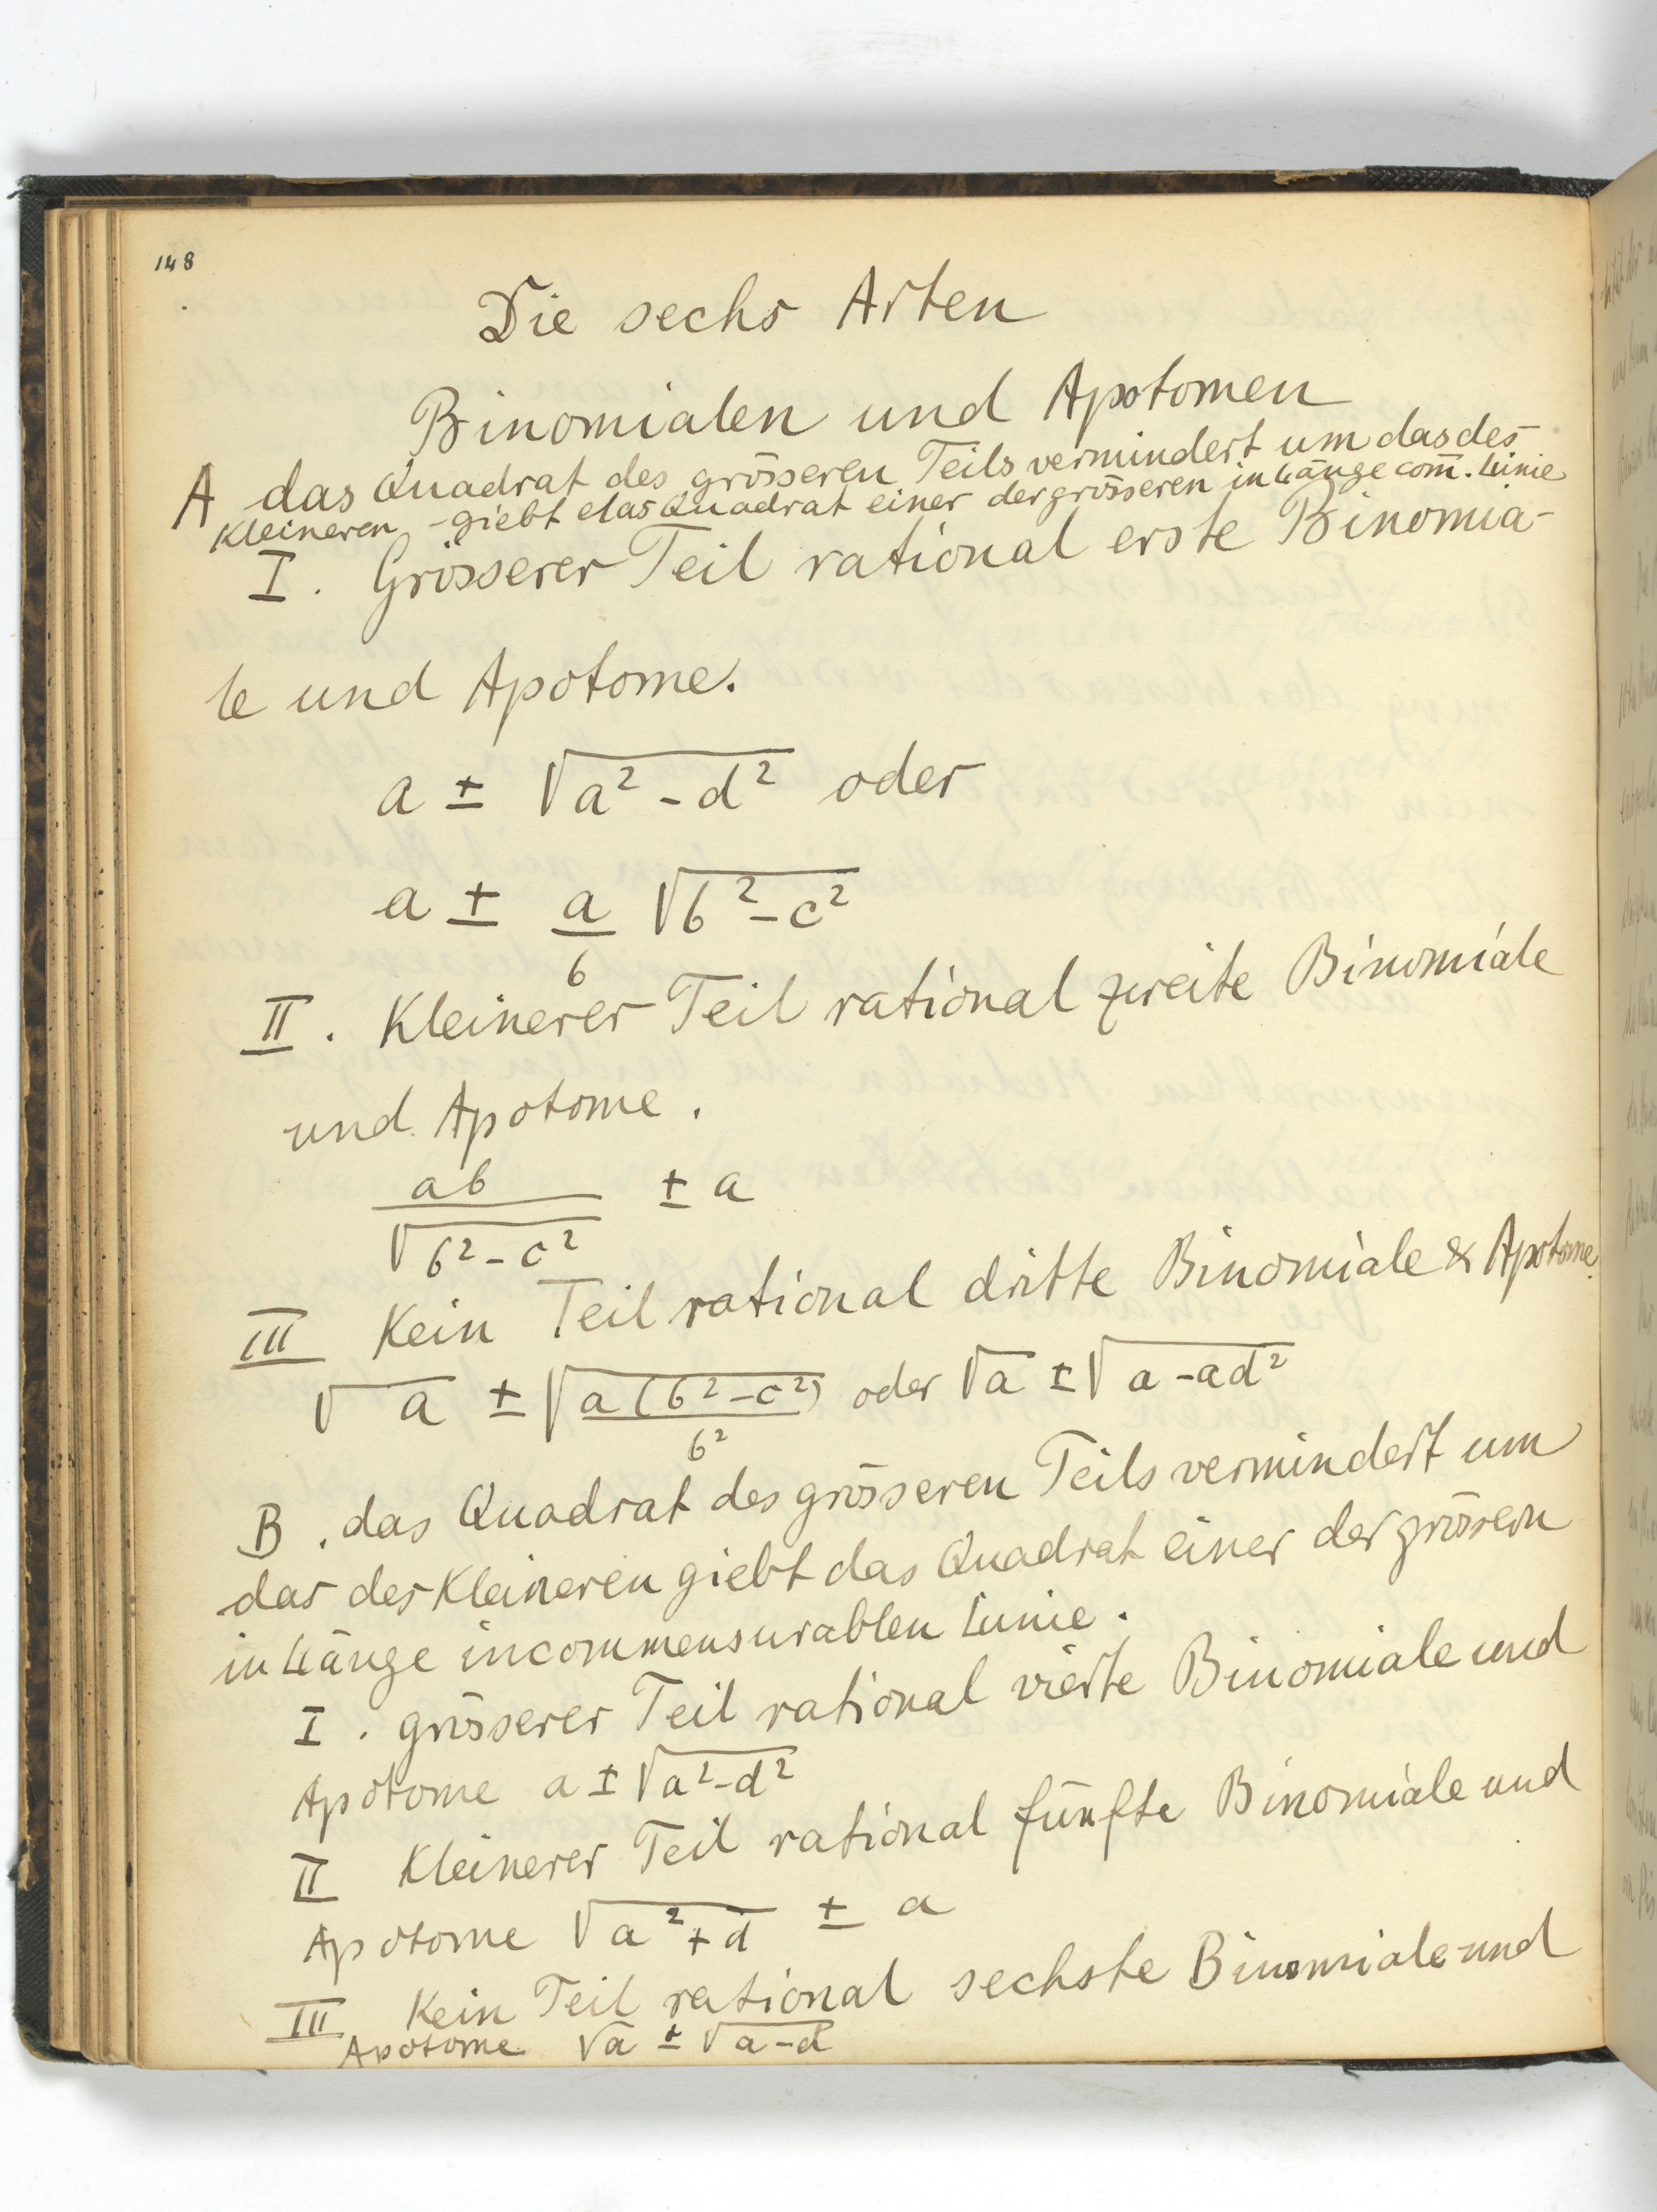 148
Die sechs Arten
Binomialen und Apotomen
A das Quadrat des grösseren Teils vermindert um das des
Kleineren - giebt das Quadrat einer der grösseren in Länge com̄. Linie
I. Grösserer Teil rational erste Binomia-
le und Apotome.
a ± √(a² - d²) oder
a ± a/b √(b² - c²)
II. Kleinerer Teil rational zweite Binomiale
und Apotome.
ab/√(b² - c²) ± a
III Kein Teil rational dritte Binomiale & Apotome
√a ± √(a(b² - c²)/b²) oder √a ± √(a - ad²)
B. das Quadrat des grösseren Teils vermindert um
das des Kleineren giebt das Quadrat einer der grössern
in Länge incommensurablen Linie.
I. grösserer Teil rational vierte Binomiale und
Apotome a ± √(a² - d²)
II Kleinerer Teil rational fünfte Binomiale und
Apotome √(a² + d) ± a
III Kein Teil rational sechste Binomiale und
Apotome √a ± √(a - d)